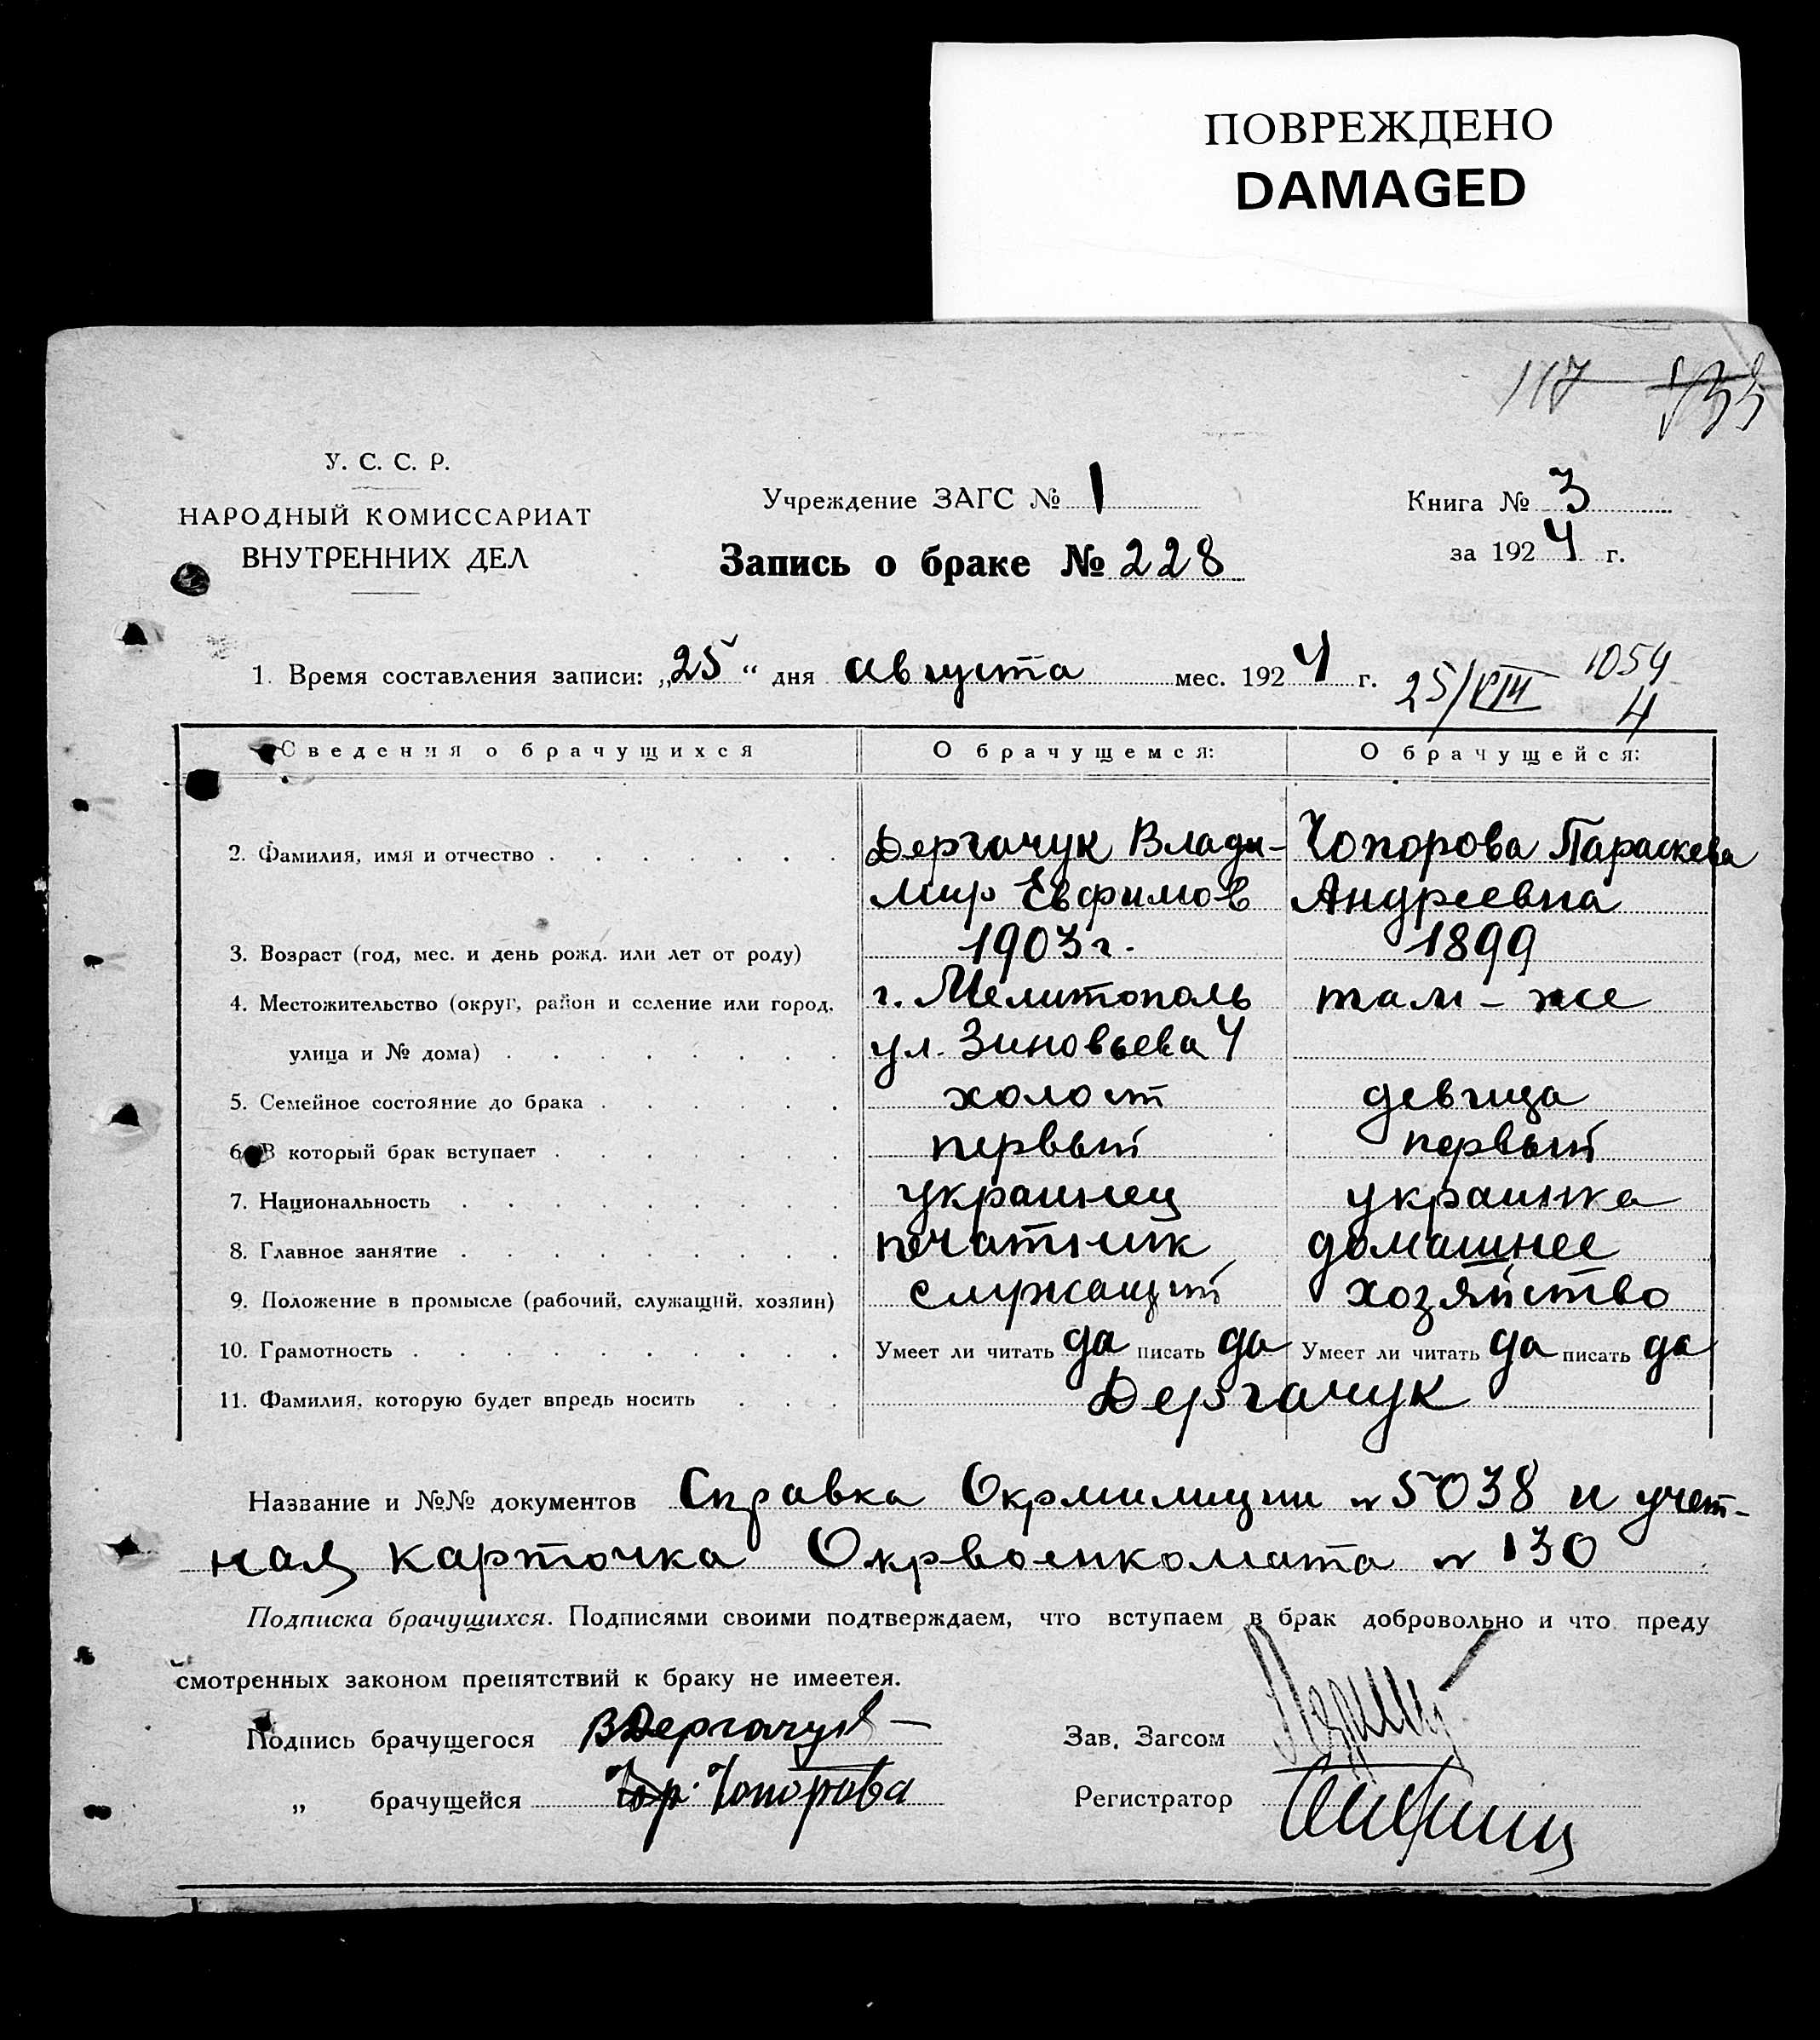 ПОВРЕЖДЕНО
DAMAGED
117
У. С. С. Р.
НАРОДНЫЙ КОМИССАРИАТ
ВНУТРЕННИХ ДЕЛ
Учреждение ЗАГС № 1
Запись о браке № 228
Книга № 3
за 1924 г.
1. Время составления записи: „25“ дня августа мес. 1924 г. 25/VIII 1054
4
Сведения о брачущихся О брачущемся: О брачущейся:
2. Фамилия, имя и отчество Дергачук Влади- Чопорова Параскева
мир Евфимов Андреевна
3. Возраст (год, мес. и день рожд. или лет от роду) 1903 г. 1899
4. Местожительство (округ, район и селение или город, г. Мелитополь там-же
улица и № дома) ул. Зиновьева 4
5. Семейное состояние до брака холост девица
6. В который брак вступает первый первый
7. Национальность украинец украинка
8. Главное занятие печатник домашнее
9. Положение в промысле (рабочий, служащий, хозяин) служащий хозяйство
10. Грамотность Умеет ли читать да писать да Умеет ли читать да писать да
11. Фамилия, которую будет впредь носить Дергачук
Название и №№ документов Справка Окрмилиции № 5038 и учет-
ная карточка Окрвоенкомата № 130
Подписка брачущихся. Подписями своими подтверждаем, что вступаем в брак добровольно и что преду
смотренных законом препятствий к браку не имеетея.
Подпись брачущегося ВДергачук
Зав. Загсом
„ брачущейся Чопорова
Регистратор